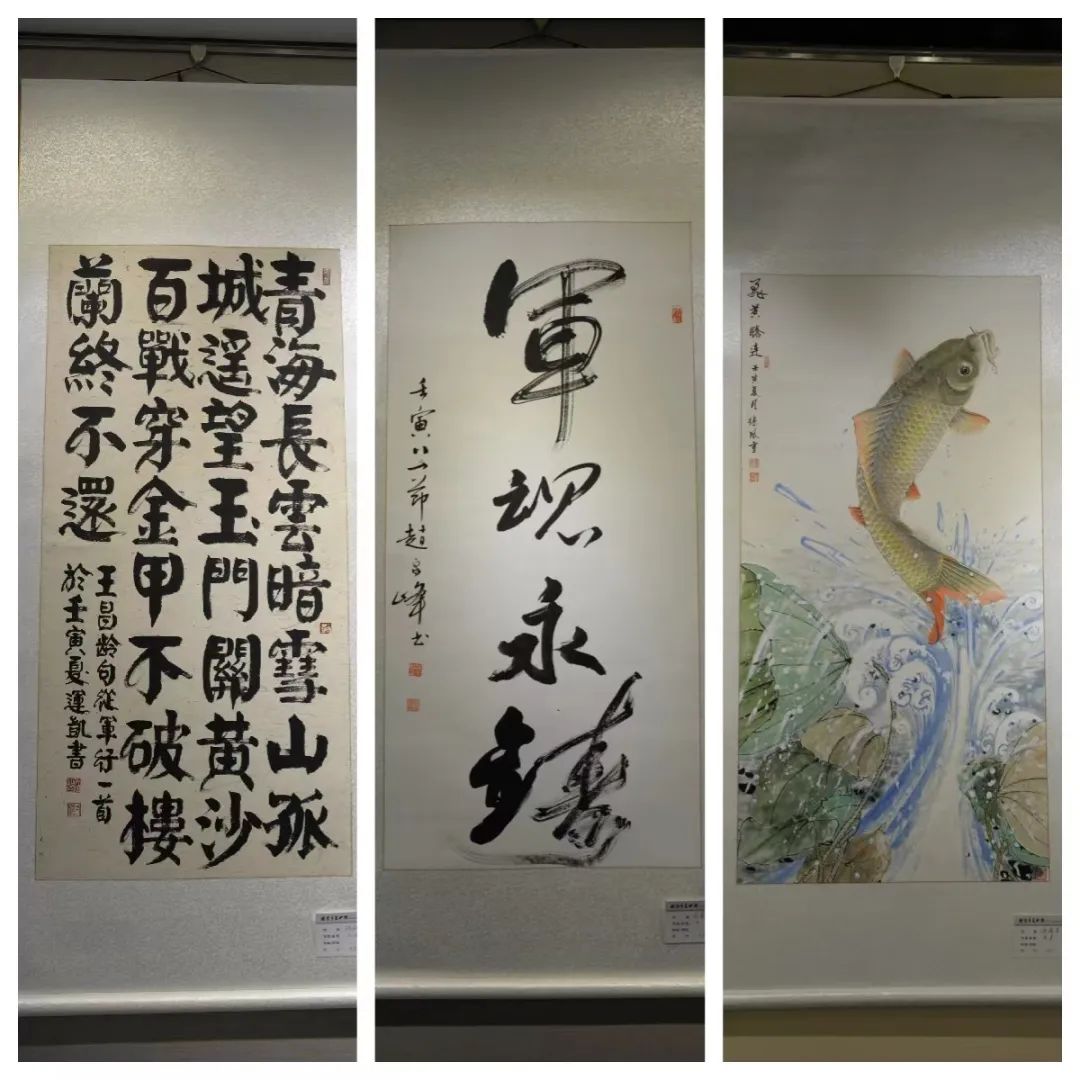 青海長雲暗雪山孤
城遥望玉門關黃沙
百戰穿金甲不破樓
蘭終不還
王昌龄句從軍行一首
於壬寅夏運凱書
軍魂永鑄
壬寅八一节趙
峰书
飛黄腾達
壬寅夏月